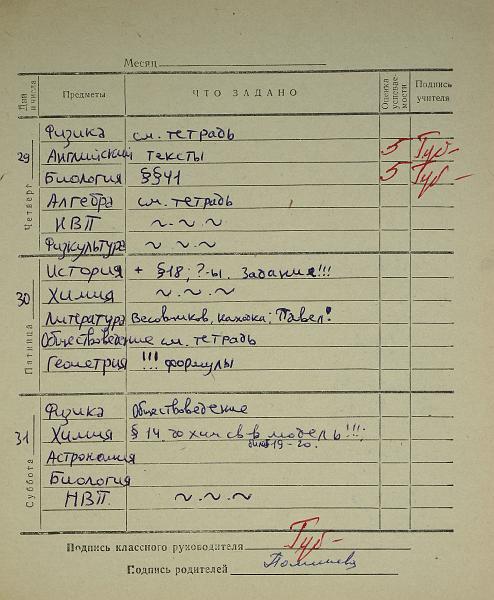 Месяц
Дни и числа Предметы ЧТО ЗАДАНО Оценка успевае-мости Подпись учителя
29 Четверг
Физика см. тетрадь
Английский тексты 5 Туб-
Биология §§41 5 Туб-
Алгебра см. тетрадь
НВП ~.~.~
Физкультура ~.~.~
30 Пятница
История + §18; ?-ы. Задания!!!
Химия ~.~.~
Литература Весовщиков, Находка; Павел!
Обществоведение см. тетрадь
Геометрия !!! формулы
31 Суббота
Физика Обществоведение
Химия § 14. до хим св-в модель!!!
19-20.
Астрономия
Биология
НВП ~.~.~
Подпись классного руководителя Туб-
Подпись родителей